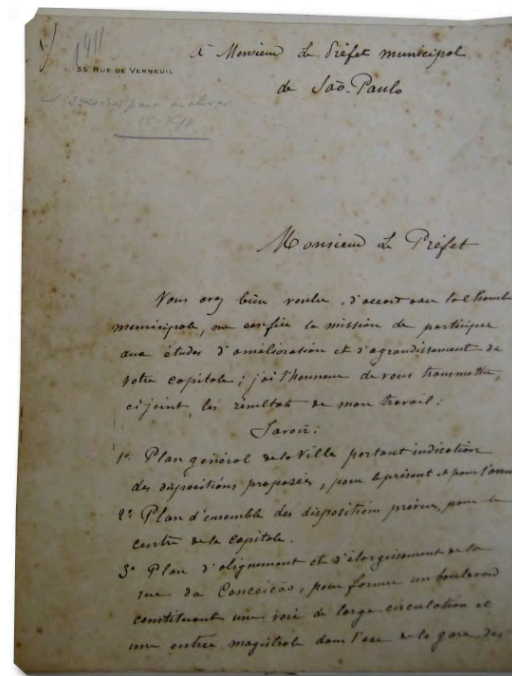 1911
55 RUE DE VERNEUIL
A Monsieur Le Préfet municipal
de São-Paulo
Monsieur Le Préfet
Vous avez bien voulu, d'accord avec la Chambre
municipale, me confier la mission de participer
aux études d'amélioration et d'agrandissement de
votre capitale; j'ai l'honneur de vous transmettre,
ci joint, les résultats de mon travail:
Savoir:
1º Plan général de la Ville portant indication
des dispositions proposées, pour le présent et pour l'avenir
2º Plan d'ensemble des dispositions prévues, pour le
centre de la capitale.
3º Plan d'alignement et d'élargissement de la
rue da Conceicão, pour former un boulevard
constituant une voie de large circulation et
une entrée magistrale dans l'axe de la gare des